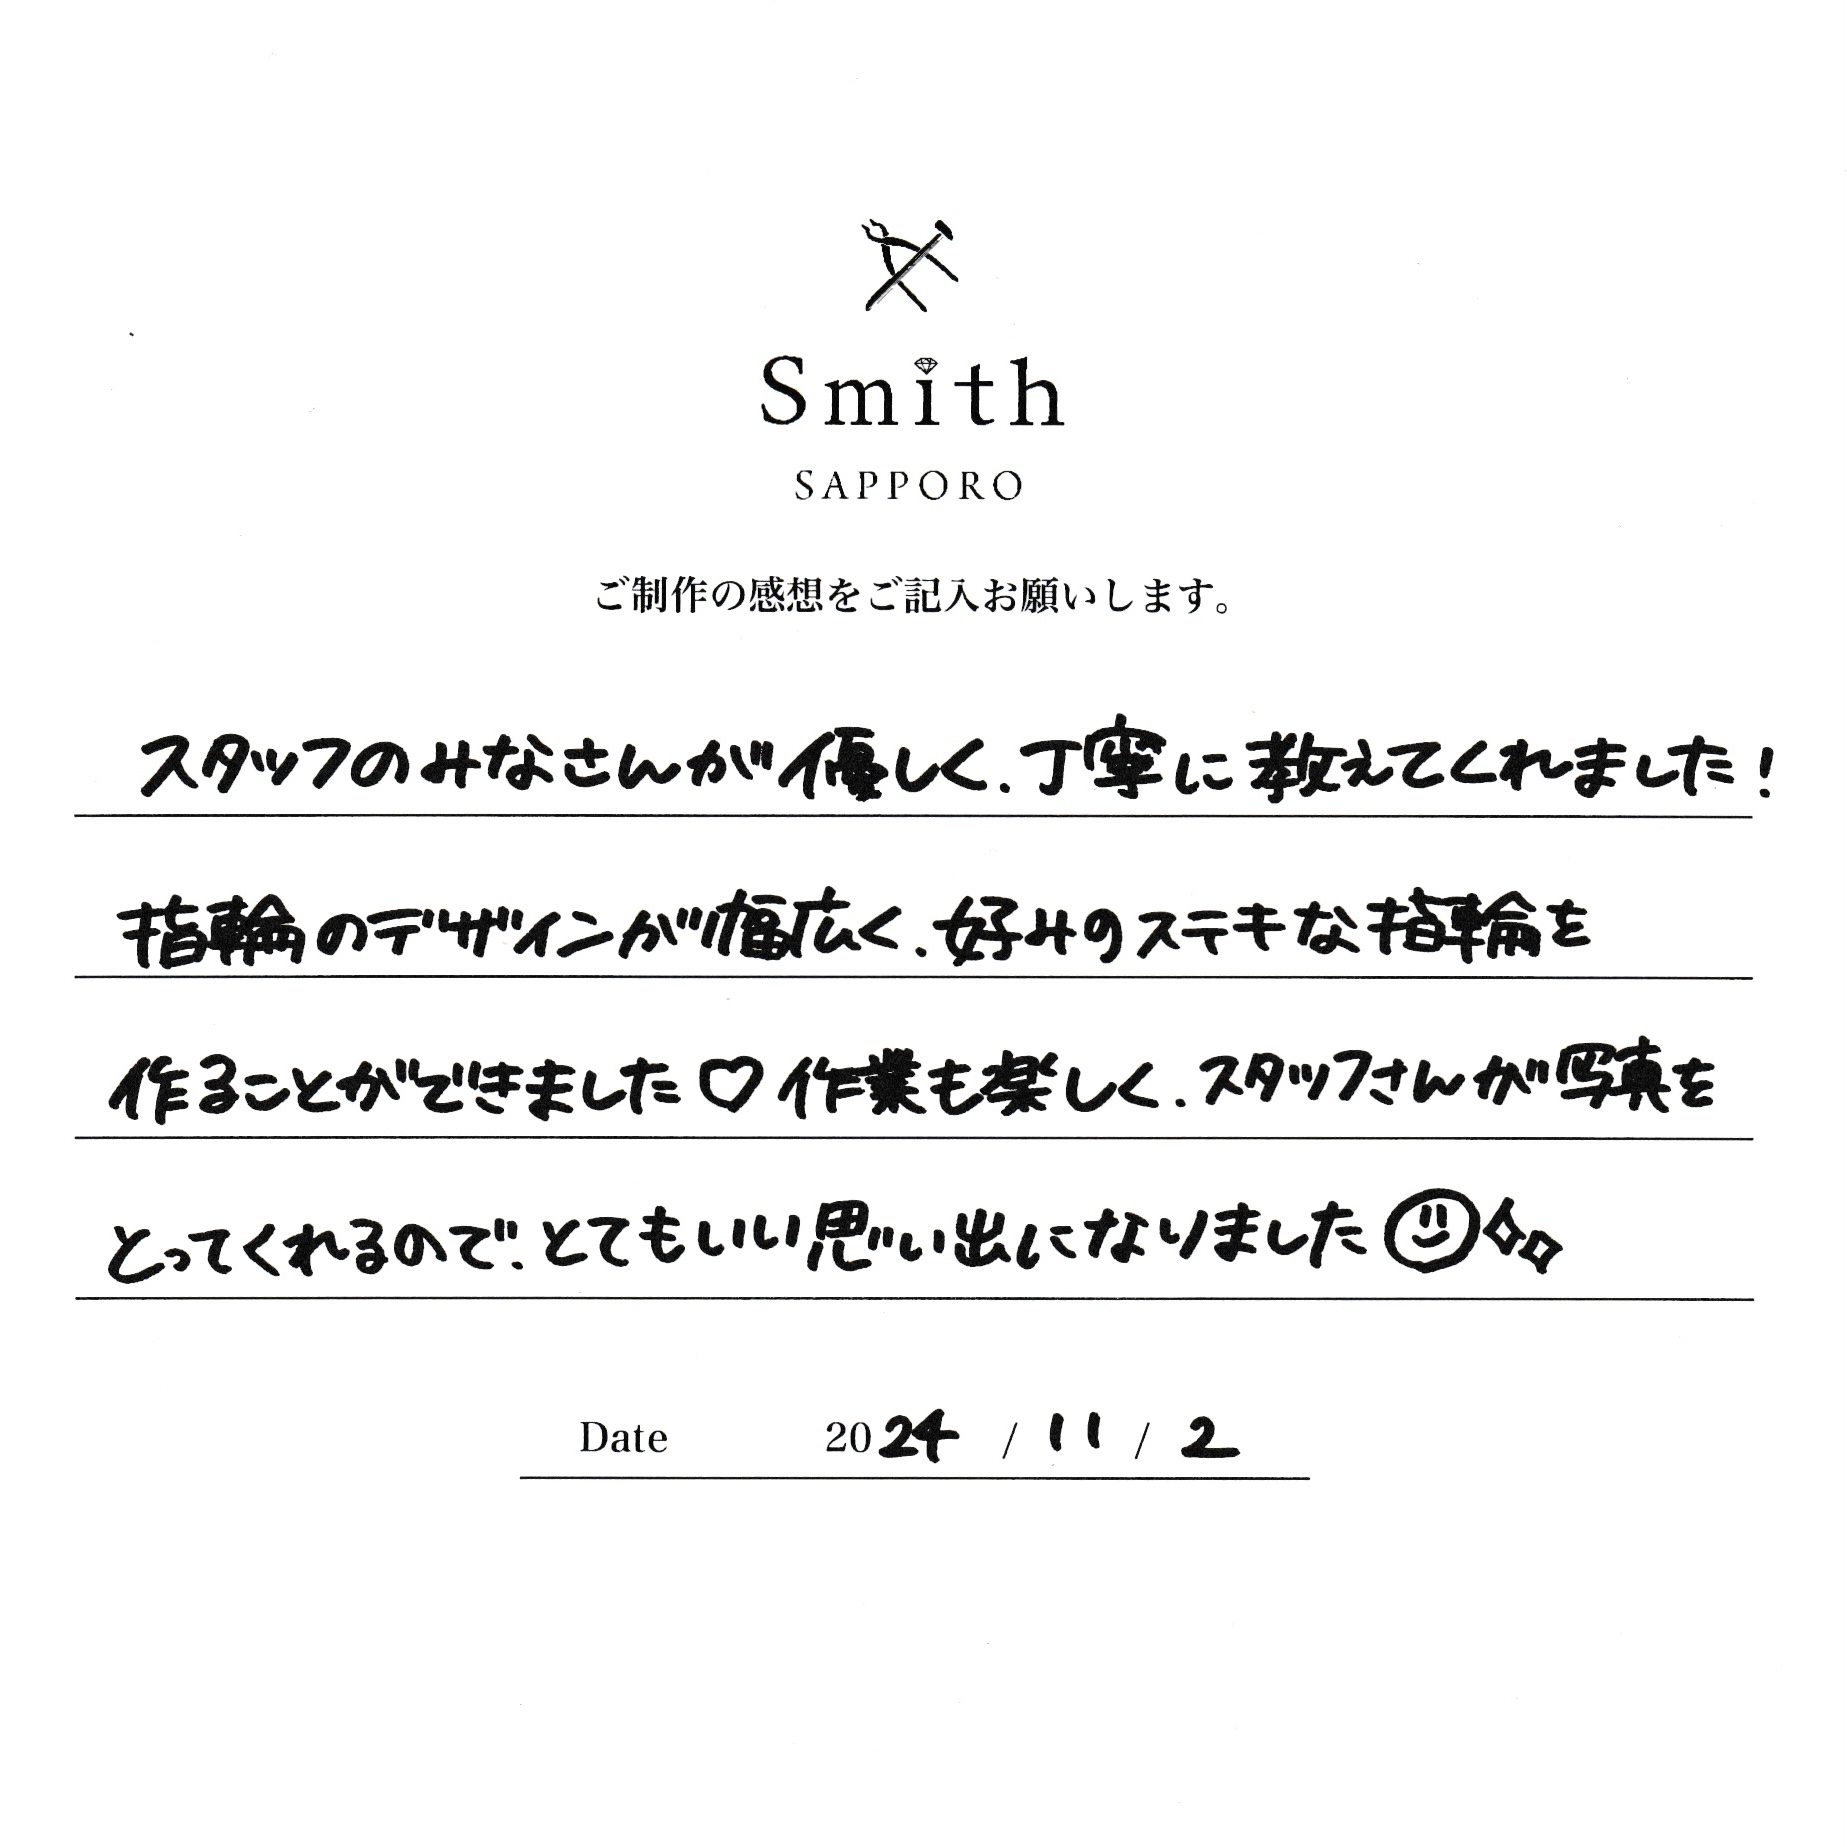 Smith
SAPPORO
ご制作の感想をご記入お願いします。
スタッフのみなさんが優しく、丁寧に教えてくれました!
指輪のデザインが幅広く、好みのステキな指輪を
作ることができました♡作業も楽しく、スタッフさんが写真を
とってくれるので、とてもいい思い出になりました
Date 2024 / 11 / 2